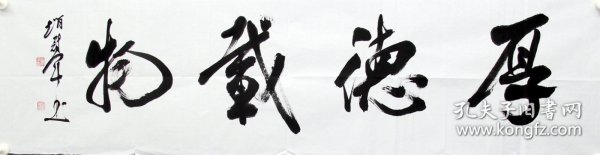 厚德載物
孔夫子旧书网
www.kongfz.com